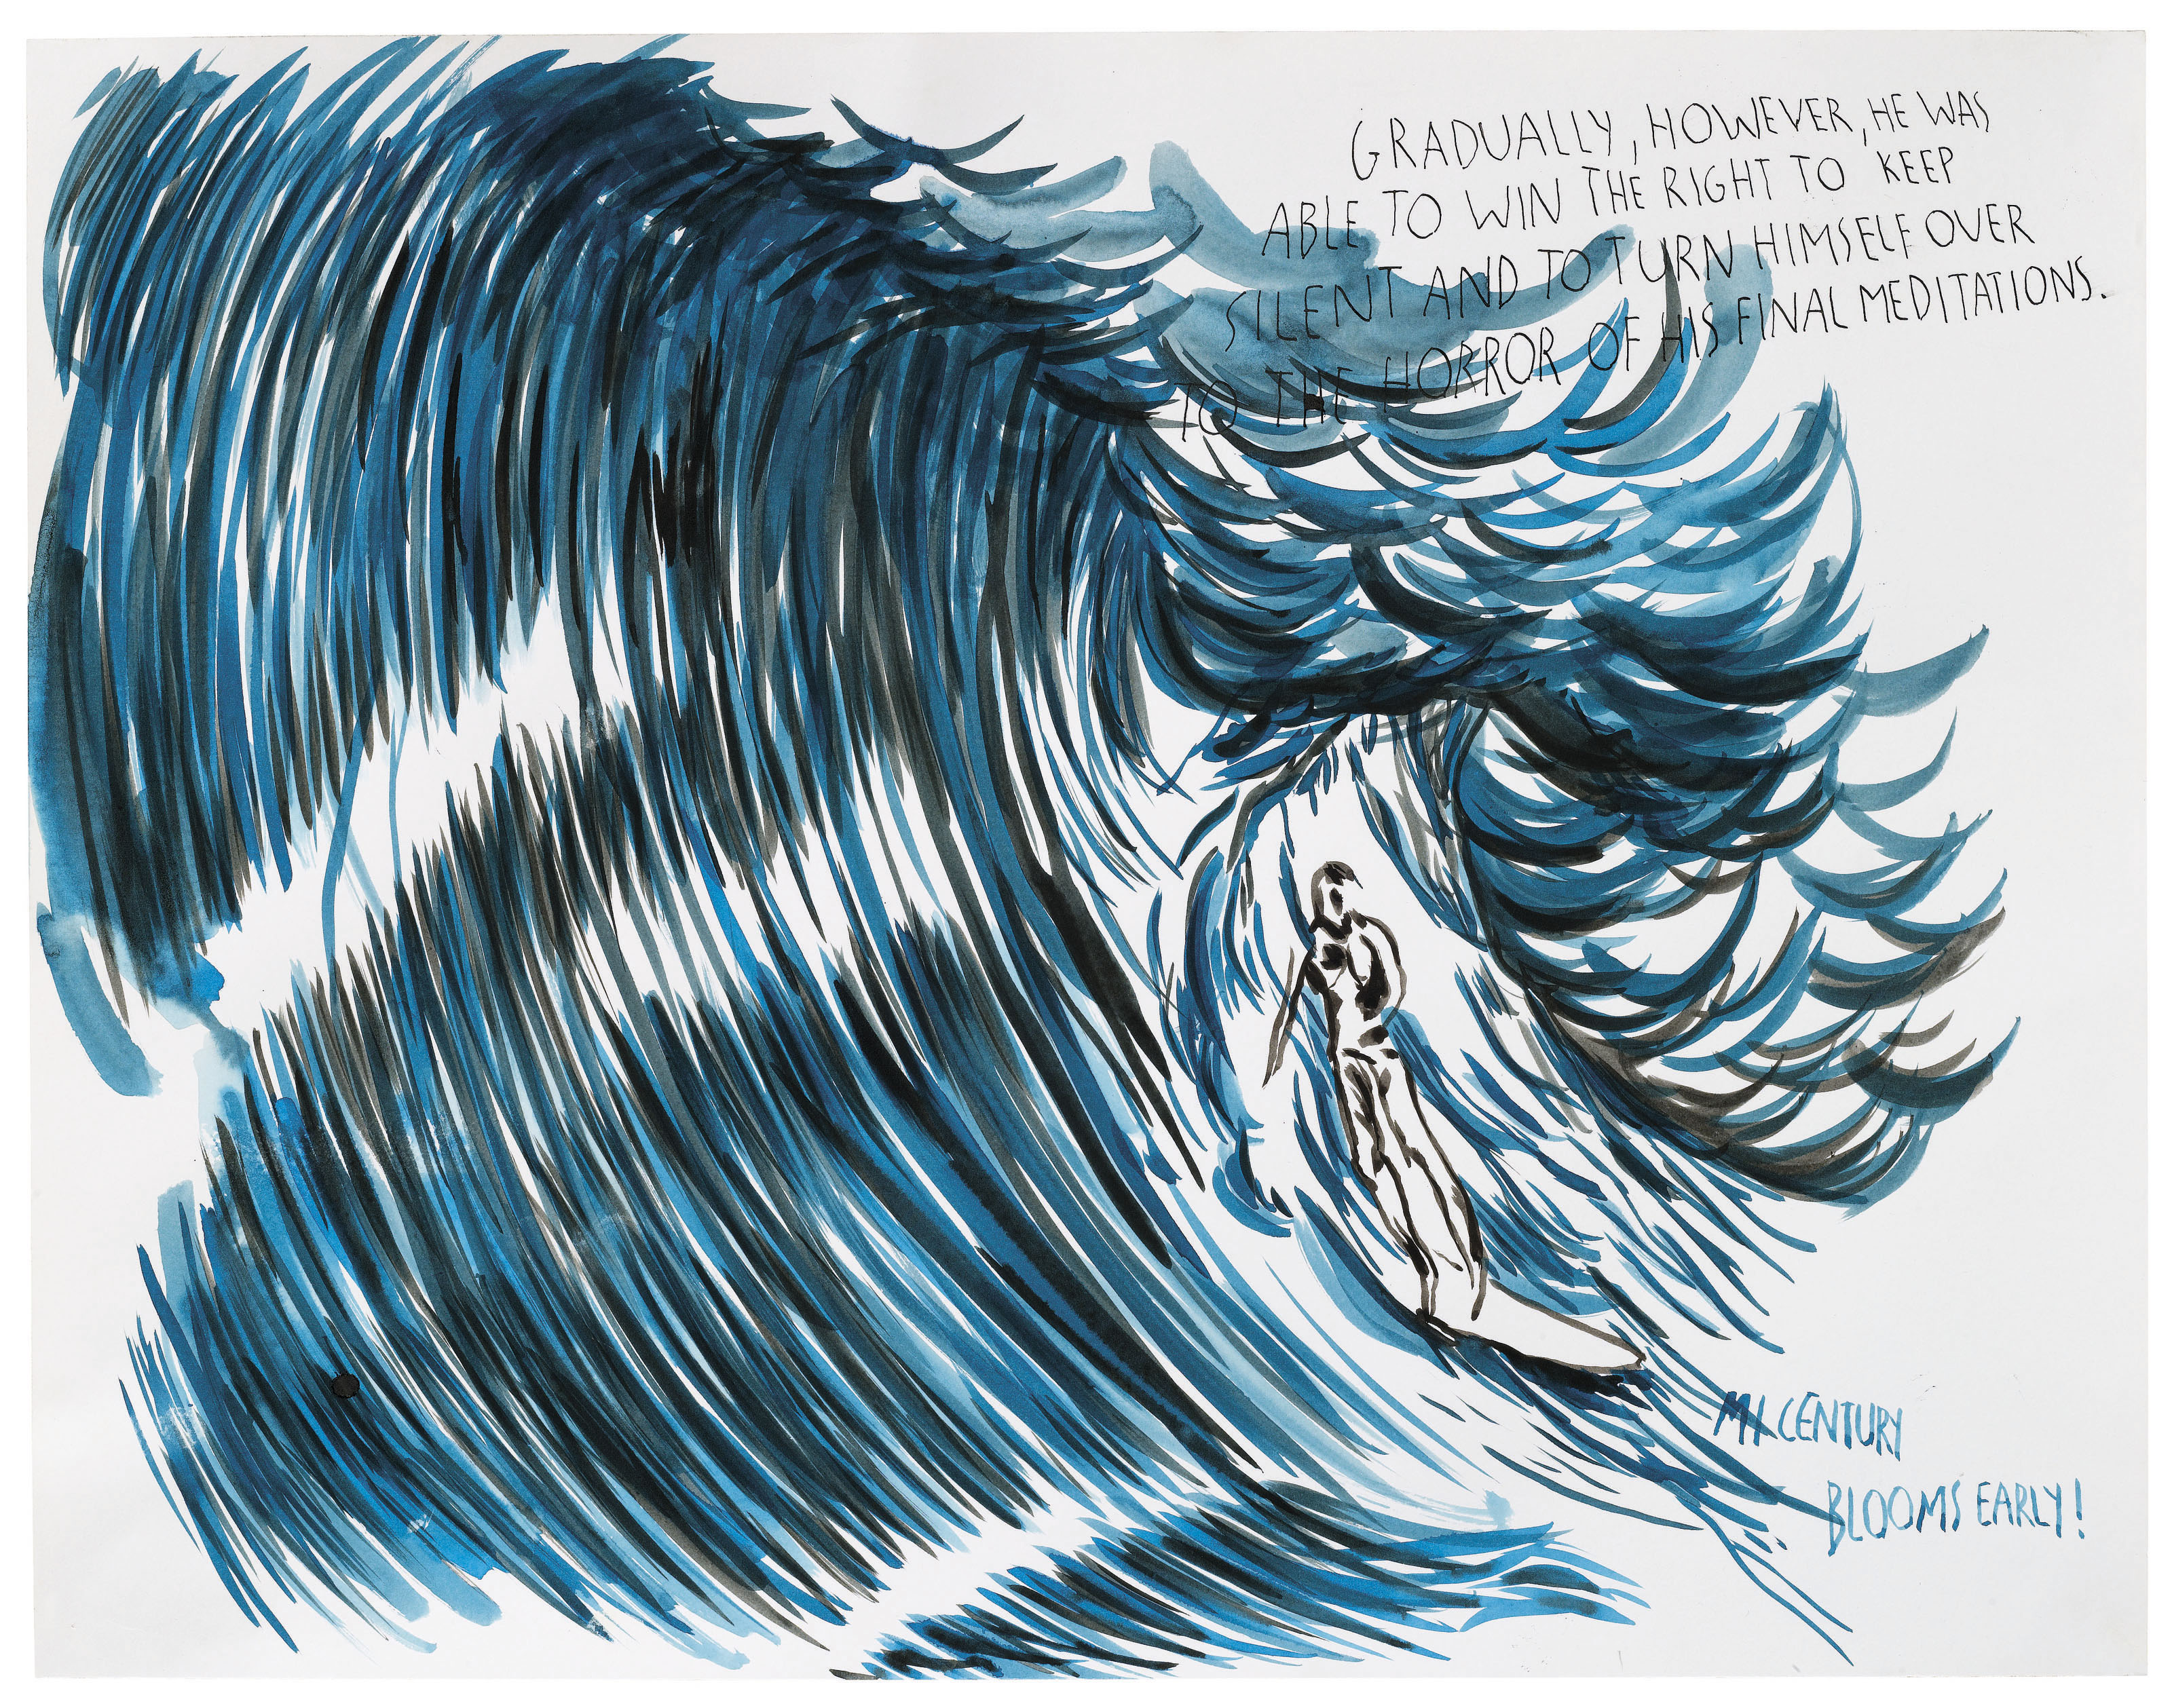 GRADUALLY, HOWEVER, HE WAS
ABLE TO WIN THE RIGHT TO KEEP
SILENT AND TO TURN HIMSELF OVER
TO THE HORROR OF HIS FINAL MEDITATIONS.
CENTURY
BLOOMS EARLY!